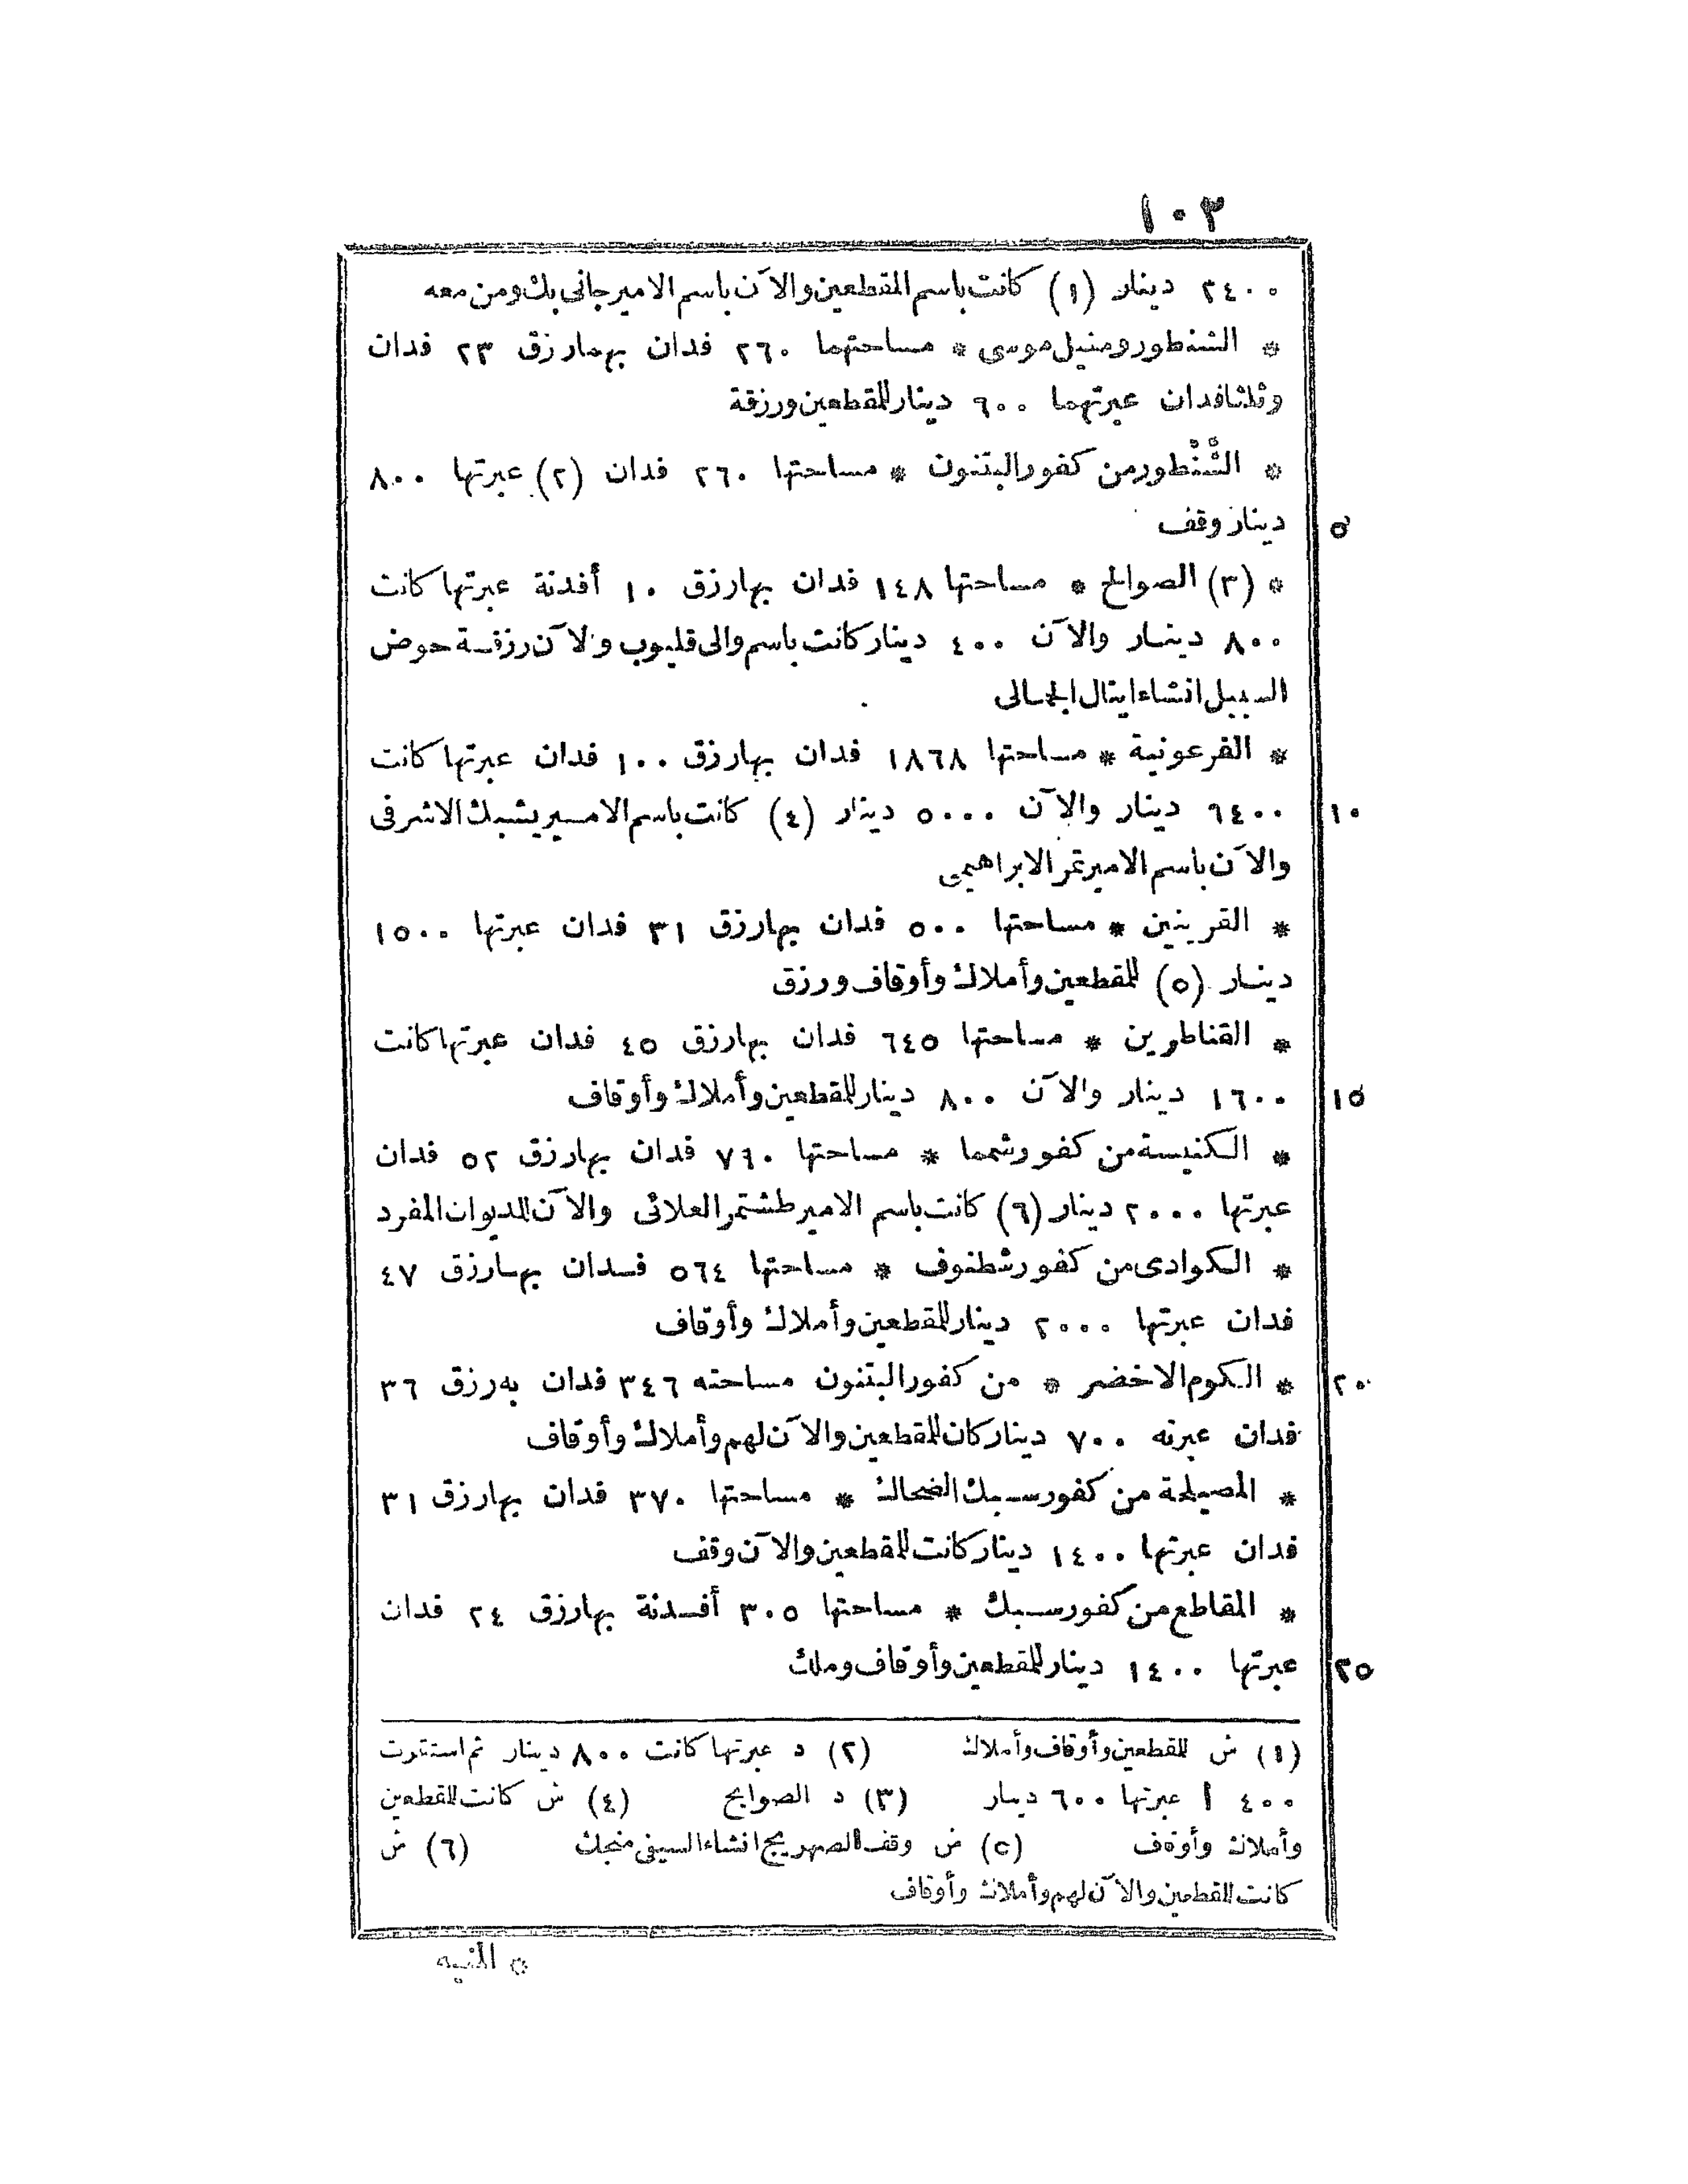 ١٠٣
٢٤٠٠ دينار (١) كانت باسم المقطعين والآن باسم الامير جانى بك ومن معه
* الشنطور ومنيل موسى * مساحتهما ٢٦٠ فدان بهما رزق ٢٣ فدان
وثلثا فدان عبرتهما ٦٠٠ دينار للمقطعين ورزقة
* الشُّنْطور من كفور البتنون * مساحتها ٢٦٠ فدان (٢) عبرتها ٨٠٠
دينار وقف ٥
* (٣) الصوالح * مساحتها ١٤٨ فدان بها رزق ١٠ أفدنة عبرتها كانت
٨٠٠ دينار والآن ٤٠٠ دينار كانت باسم والى قليوب والآن رزقة حوض
السبيل انشاء اينال الجمالى
* القرعونية * مساحتها ١٨٦٨ فدان بها رزق ١٠٠ فدان عبرتها كانت
٦٤٠٠ دينار والآن ٥٠٠٠ دينار (٤) كانت باسم الامير يشبك الاشرفى ١٠
والآن باسم الامير تمر الابراهيمى
* القرينين * مساحتها ٥٠٠ فدان بها رزق ٣١ فدان عبرتها ١٥٠٠
دينار (٥) للمقطعين وأملاك وأوقاف ورزق
* القناطرين * مساحتها ٦٤٥ فدان بها رزق ٤٥ فدان عبرتها كانت
١٦٠٠ دينار والآن ٨٠٠ دينار للمقطعين وأملاك وأوقاف ١٥
* الكنيسة من كفور شمما * مساحتها ٧٦٠ فدان بها رزق ٥٢ فدان
عبرتها ٢٠٠٠ دينار (٦) كانت باسم الامير طشتمر العلائى والآن للديوان المفرد
* الكوادى من كفور شطنوف * مساحتها ٥٦٤ فدان بها رزق ٤٧
فدان عبرتها ٢٠٠٠ دينار للمقطعين وأملاك وأوقاف
* الكوم الاخضر * من كفور البتنون مساحته ٣٤٦ فدان به رزق ٣٦ ٢٠
فدان عبرته ٧٠٠ دينار كان للمقطعين والآن لهم وأملاك وأوقاف
* المصيلحة من كفور سبك الضحاك * مساحتها ٣٧٠ فدان بها رزق ٣١
فدان عبرتها ١٤٠٠ دينار كانت للمقطعين والآن وقف
* المقاطع من كفور سبك * مساحتها ٣٠٥ أفدنة بها رزق ٢٤ فدان
عبرتها ١٤٠٠ دينار للمقطعين وأوقاف وملك ٢٥
(١) ش للمقطعين وأوقاف وأملاك (٢) د عبرتها كانت ٨٠٠ دينار ثم استقرت
٤٠٠ أ عبرتها ٦٠٠ دينار (٣) د الصوابح (٤) ش كانت للمقطعين
وأملاك وأوقاف (٥) ش وقف الصهريج انشاء السيفى منجك (٦) ش
كانت للمقطعين والآن لهم وأملاك وأوقاف
* المنيه